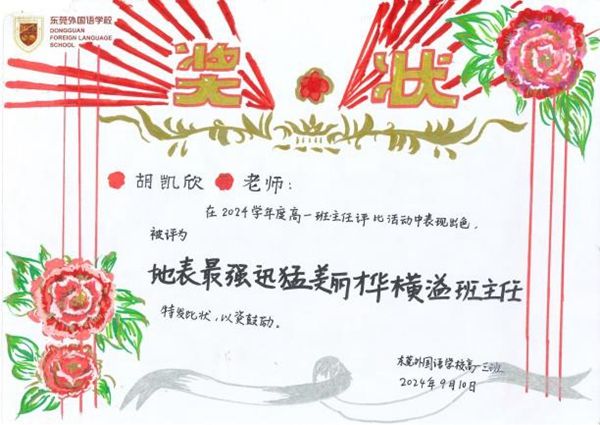 东莞外国语学校
DONGGUAN
FOREIGN LANGUAGE
SCHOOL
奖状
胡凯欣 老师：
在2024学年度高一班主任评比活动中表现出色，
被评为
地表最强迅猛美丽才华横溢班主任
特发此状，以资鼓励。
东莞外国语学校高一三班
2024年9月10日